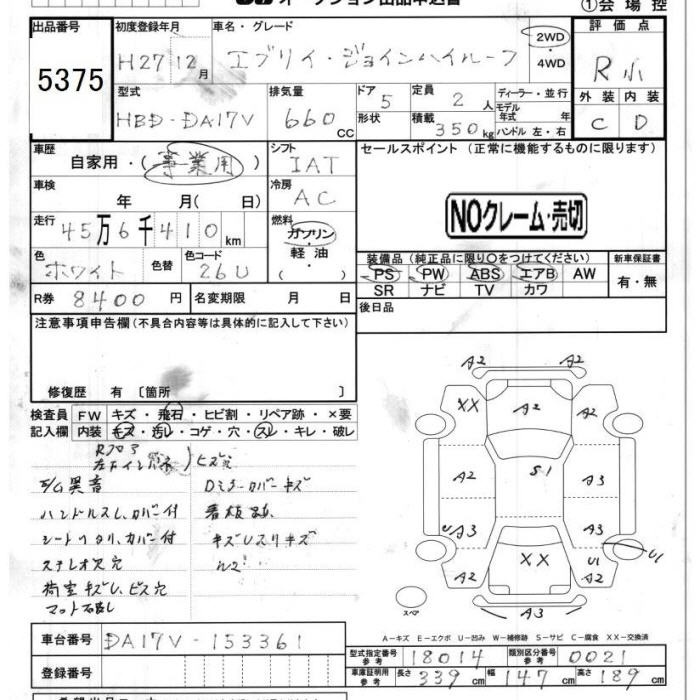 オークション出品申込書
①会場控
出品番号 5375
初度登録年月 H27 12月
車名・グレード エブリイ・ジョインハイルーフ
2WD・4WD
評価点 R小
外装 C 内装 D
型式 HBD-DA17V
排気量 660 CC
ドア 5 形状
定員 2人 積載 350kg
ディーラー・並行
モデル年式 年式
ハンドル 左・右
車歴 自家用・(事業用)
シフト IAT
セールスポイント (正常に機能するものに限ります)
車検 年 月( 日)
冷房 AC
NOクレーム・売切
走行 45万6千410km
燃料 ガソリン・軽油 ( )
色 ホワイト 色替 色コード 26U
装備品 (純正品に限り○をつけてください)
PS PW ABS エアB AW
SR ナビ TV カワ
新車保証書 有・無
R券 8400円 名変期限 月 日
後日品
注意事項申告欄 (不具合内容等は具体的に記入して下さい)
修復歴 有 〔箇所 〕
検査員記入欄 FW キズ・飛石・ヒビ割・リペア跡・×要
内装 キズ・汚レ・コゲ・穴・スレ・キレ・破レ
ビス穴
異音 Dミラーカバーキズ
ハンドルスレ、カバー付 看板跡
シートヘタリ、カバー付 キズレスリキズ
ステレオス穴
荷室キズU、ビス穴
マット
A2 A2
XX A2 A2
A2 S1 A3
UA3 A3
U1
A2 XX U1 A2
A3
スペア
A-キズ E-エクボ U-凹み W-補修跡 S-サビ C-腐食 XX-交換済
車台番号 DA17V-153361
型式指定番号 参考 18014 類別区分番号 参考 0021
登録番号
車庫証明用 参考 長さ 339cm 幅 147cm 高さ 189cm